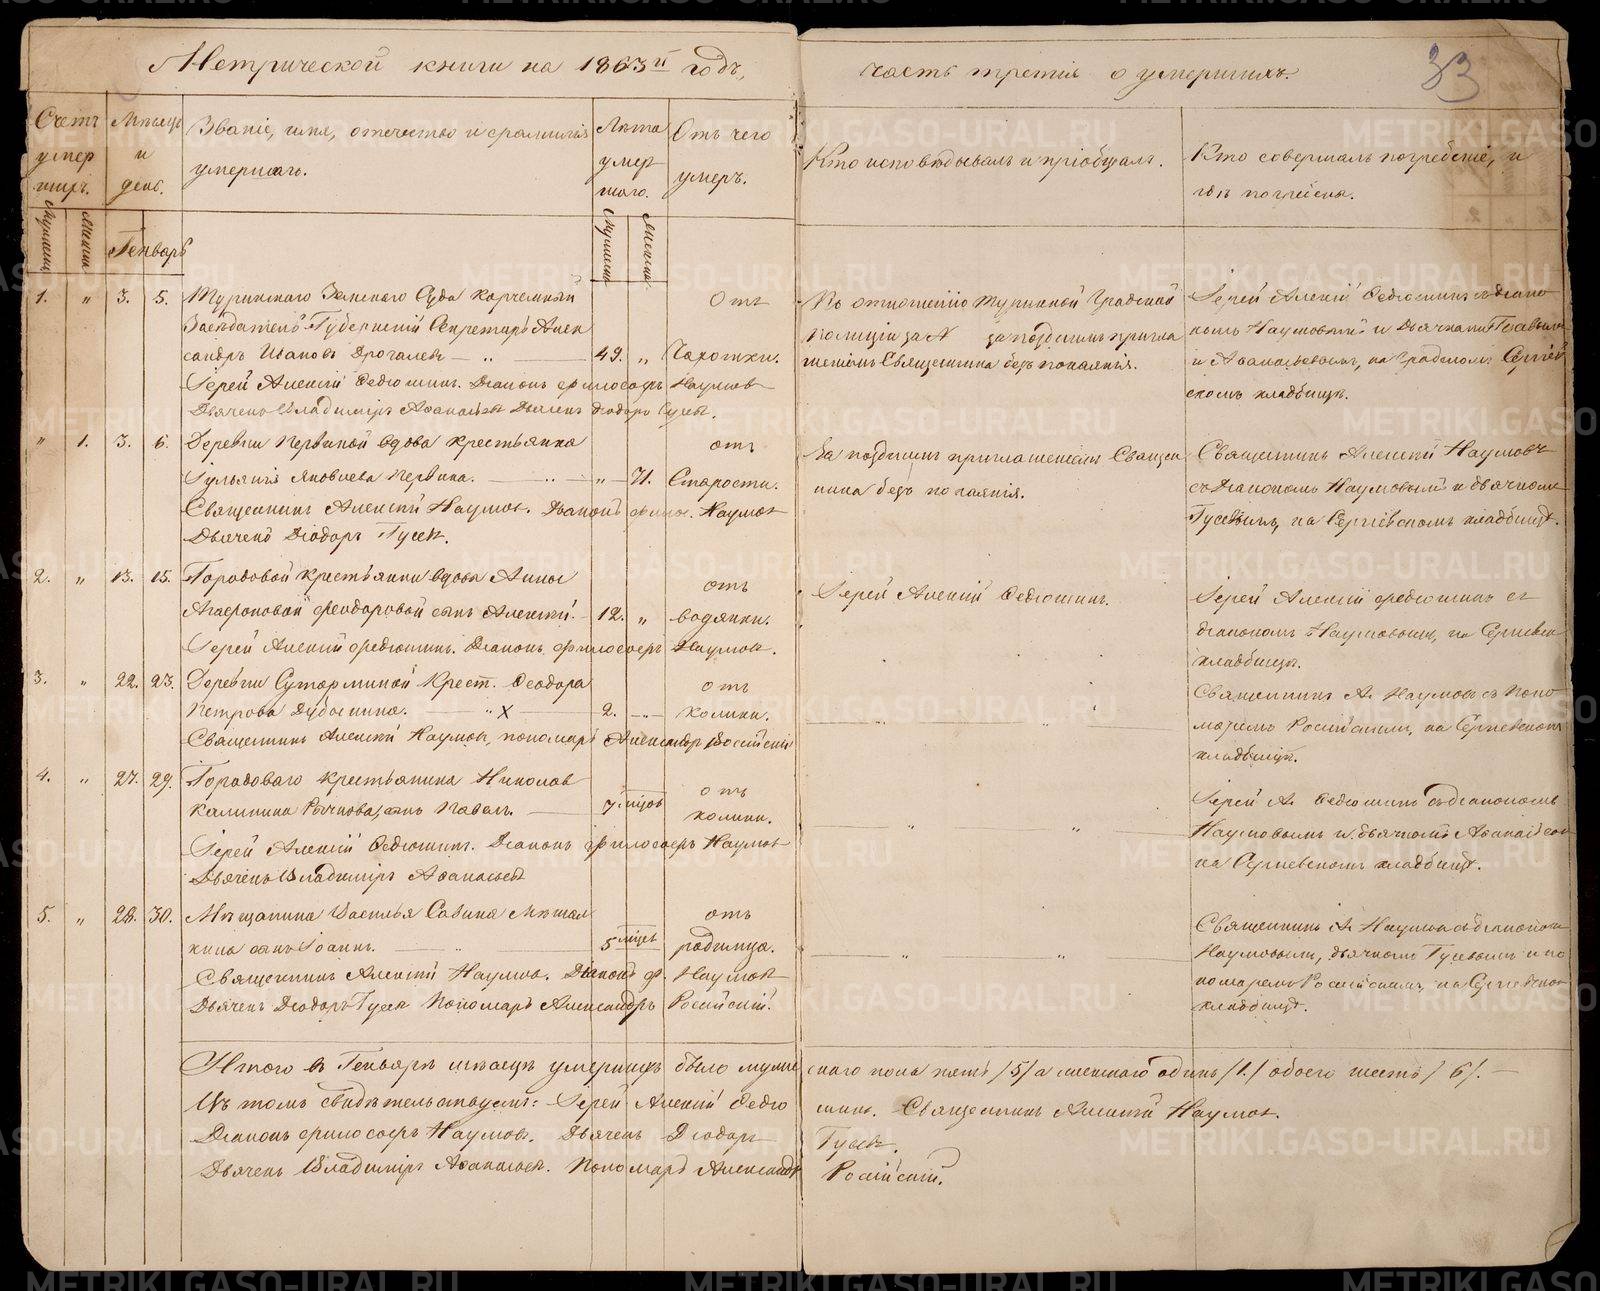 Метрической книги на 1863й годъ,
часть третія о умершихъ.
33
Счетъ умершихъ.
Мѣсяцъ и день.
Званіе, имя, отечество и фамилія умершаго.
Лѣта умершаго.
Отъ чего умеръ.
Кто исповѣдывалъ и пріобщалъ.
Кто совершалъ погребеніе, и гдѣ погребены.
Генварь
1. " 3. 5. Туринскаго Земскаго Суда Корчемный
Засѣдатель Губернскій Секретарь Алек
сандръ Ивановъ 49. " Чахотки.
Отъ
Іерей Алексій Федюшинъ. Діаконъ Философъ Наумовъ
Дьячекъ Владиміръ Аѳанасьевъ Дьячекъ Діодоръ Гусевъ.
По отношенію Туринской Градской
Полиціи за № за позднимъ пригла
шеніемъ Священника безъ покаянія.
Іерей Алексій Федюшинъ съ діако
номъ Наумовымъ и Дьячками Гусевымъ
и Аѳанасьевымъ, на градскомъ Сергіев
скомъ кладбищѣ.
" 1. 3. 6. Деревни Первиной вдова крестьянка
Іульянія Яковлева Первина. " 71. отъ Старости.
Священникъ Алексѣй Наумовъ. Діаконъ Филос. Наумовъ
Дьячекъ Діодоръ Гусевъ.
За позднимъ приглашеніемъ Священ
ника безъ покаянія.
Священникъ Алексѣй Наумовъ
съ Діакономъ Наумовымъ и дьячкомъ
Гусевымъ, на Сергіевскомъ кладбищѣ.
2. " 13. 15. Городовой крестьянки вдовы Анны
Агафоновой Феодоровой сынъ Алексѣй. 12. " отъ водянки.
Іерей Алексій Федюшинъ. Діаконъ Философъ Наумовъ.
Іерей Алексій Федюшинъ.
Іерей Алексій Федюшинъ съ
діакономъ Наумовымъ, на Сергіевск
кладбищѣ.
3. " 22. 23. Деревни Крест. Ѳеодора
Петрова 2. " отъ колики.
Священникъ Алексѣй Наумовъ, пономарь Александръ Россійскій
Священникъ А. Наумовъ съ Поно
маремъ Россійскимъ, на Сергіевскомъ
кладбищѣ.
4. " 27. 29. Городоваго крестьянина Николая
Калинина сынъ Павелъ. 7 мѣсяц. отъ колики.
Іерей Алексій Федюшинъ. Діаконъ Философъ Наумовъ
Дьячекъ Владиміръ Аѳанасьевъ
Іерей А. Федюшинъ съ діакономъ
Наумовымъ и дьячкомъ Аѳанасьев.
на Сергіевскомъ кладбищѣ.
5. " 28. 30. Мѣщанина Василья Савина
сынъ Іоаннъ. 5 мѣсяц. отъ родимца.
Священникъ Алексѣй Наумовъ. Діаконъ Ф. Наумовъ
Дьячекъ Діодоръ Гусевъ Пономарь Александръ Россійскій.
Священникъ А. Наумовъ съ діакономъ
Наумовымъ, дьячкомъ Гусевымъ и по
номаремъ Россійскимъ, на Сергіевском
кладбищѣ.
Итого въ Генварѣ мѣсяцѣ умершихъ было муже скаго пола пять /5/ а женскаго одинъ /1./ обоего шесть / 6/. —
Въ томъ свидѣтельствуемъ: Іерей Алексій Федю шинъ. Священникъ Алексѣй Наумовъ.
Діаконъ Философъ Наумовъ. Дьячекъ Діодоръ Гусевъ.
Дьячекъ Владиміръ Аѳанасьевъ. Пономарь Александръ Россійскій.
METRIKI.GASO-URAL.RU